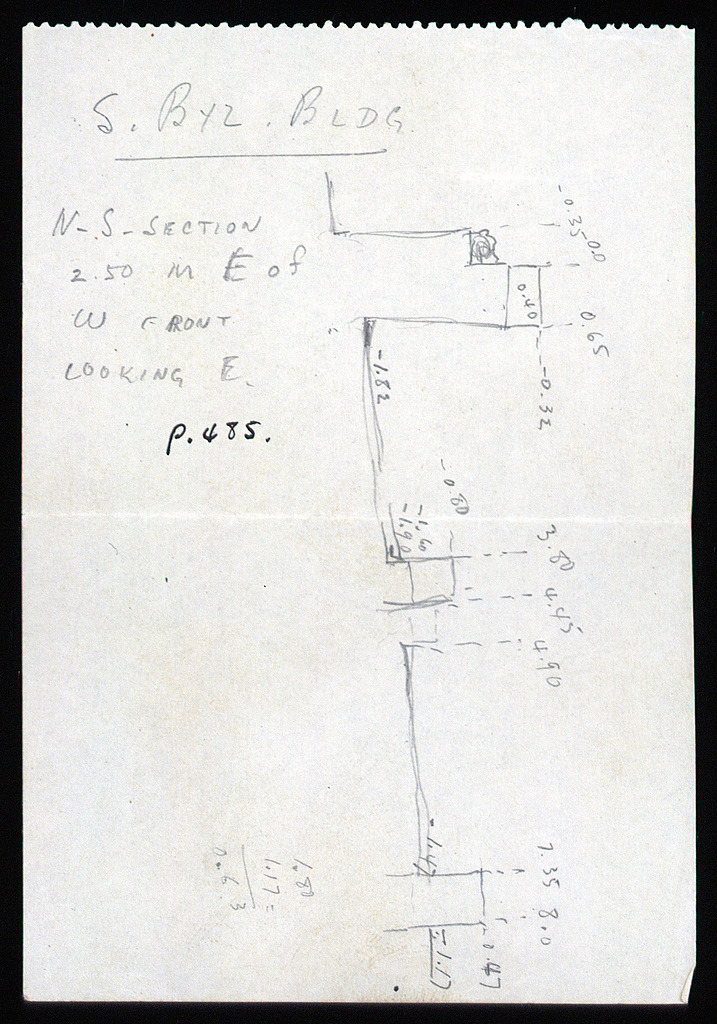 S. BYZ. BLDG
N-S-SECTION
2.50 M E of
W FRONT
LOOKING E.
p.485.
-0.35
0.0
0.40
0.65
-0.32
-1.82
-0.80
-1.60
-1.90
3.80
4.45
4.90
-1.47
7.35
8.0
-0.47
-1.17
1.80
1.17=
0.63